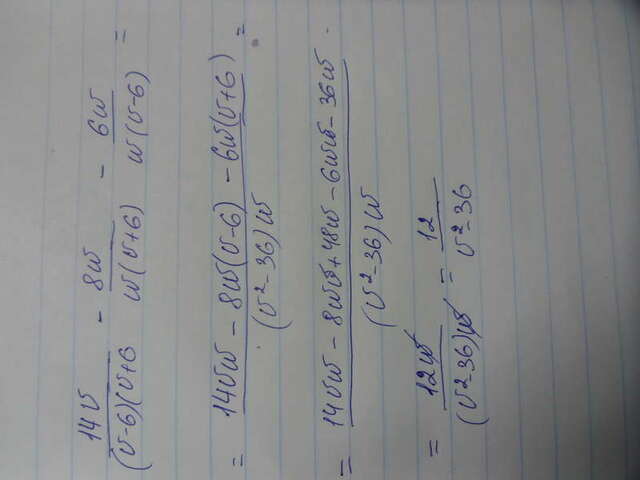 14v/(v-6)(v+6 - 8w/w(v+6) - 6w/w(v-6) =
= 14vw - 8w(v-6) - 6w(v+6)/(v²-36)w =
= 14vw - 8wv + 48w - 6wv - 36w/(v²-36)w
= 12w/(v²-36)w = 12/v²-36